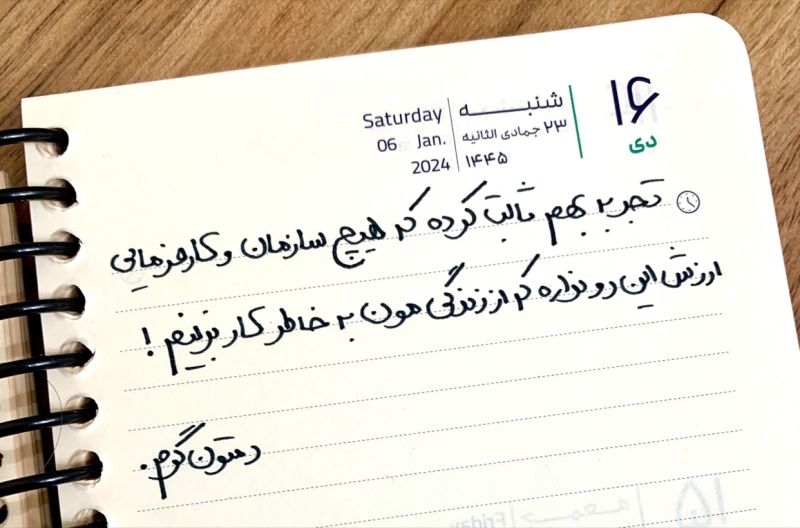 ۱۶
دی
شنبه
۲۳ جمادی الثانیه
۱۴۴۵
Saturday
06 Jan.
2024
تجربه بهم ثابت کرده که هیچ سازمان و کارفرمایی
ارزش این رو نداره که از زندگی مون به خاطر کار بزنیم!
دمتون گرم.
۱۵
جمعه
Friday